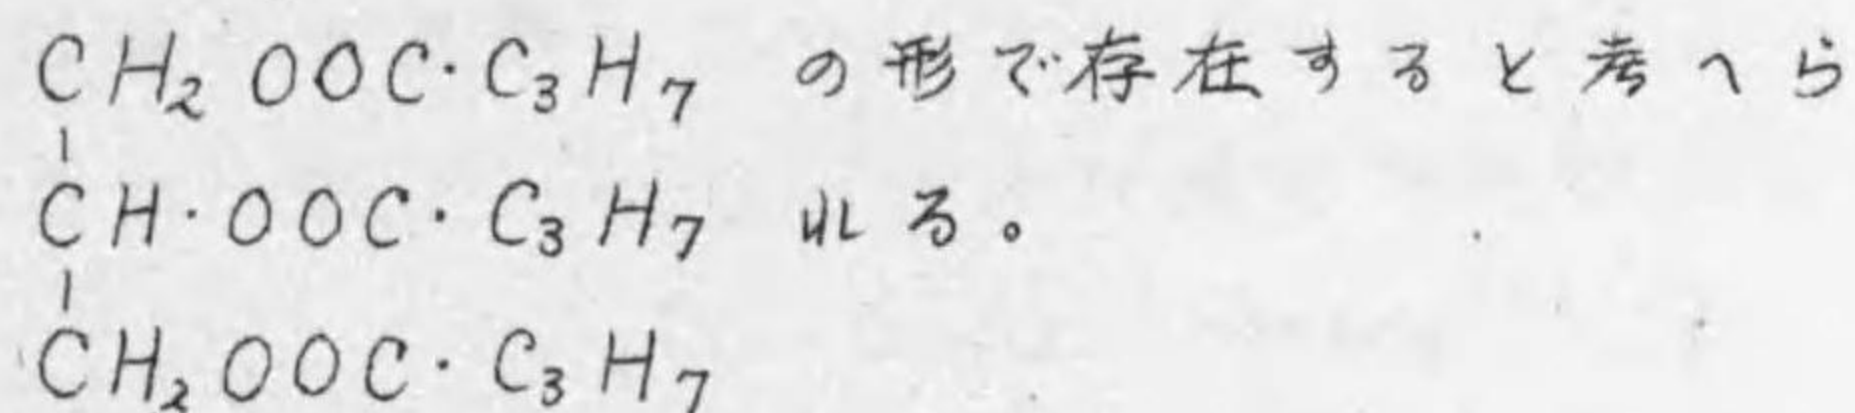 CH₂OOC·C₃H₇ の形で存在すると考へら
|
CH·OOC·C₃H₇ れる。
|
CH₂OOC·C₃H₇